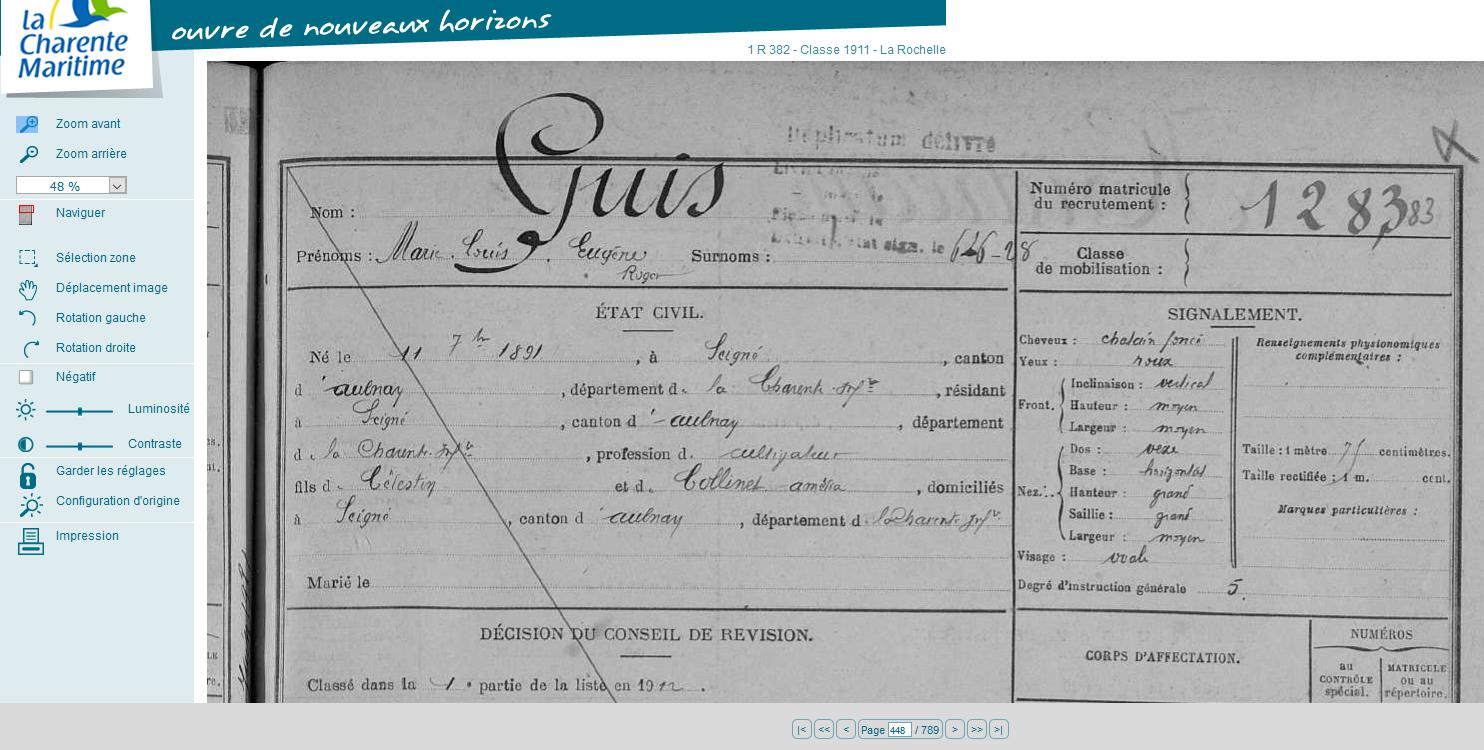 la
Charente
Maritime
ouvre de nouveaux horizons
1 R 382 - Classe 1911 - La Rochelle
Zoom avant
Zoom arrière
48 %
Naviguer
Sélection zone
Déplacement image
Rotation gauche
Rotation droite
Négatif
Luminosité
Contraste
Garder les réglages
Configuration d'origine
Impression
Duplicatum délivré
Nom : Guis
Prénoms : Marie Louis, Eugène
Roger
Surnoms :
état sign. le 6-6-28
ÉTAT CIVIL.
Né le 11 7bre 1891, à Seigné, canton
d'aulnay, département de la Charente Infre, résidant
à Seigné, canton d'aulnay, département
de la Charente-Infre, profession de cultivateur
fils de Célestin et de Collinet amélia, domiciliés
à Seigné, canton d'aulnay, département de la Charente Infre
Marié le
DÉCISION DU CONSEIL DE REVISION.
Classé dans la 1e partie de la liste en 1912.
Numéro matricule
du recrutement : 1283
83
Classe
de mobilisation :
SIGNALEMENT.
Cheveux : chatain foncé
Yeux : roux
Front. Inclinaison : vertical
Hauteur : moyen
Largeur : moyen
Nez. Dos : vexe
Base : horizontal
Hauteur : grand
Saillie : grand
Largeur : moyen
Visage : ovale
Renseignements physionomiques
complémentaires :
Taille : 1 mètre 71 centimètres.
Taille rectifiée : 1 m. cent.
Marques particulières :
Degré d'instruction générale 5.
CORPS D'AFFECTATION.
NUMÉROS
au
CONTRÔLE
spécial.
MATRICULE
ou au
répertoire.
|< << < Page 448 / 789 > >> >|